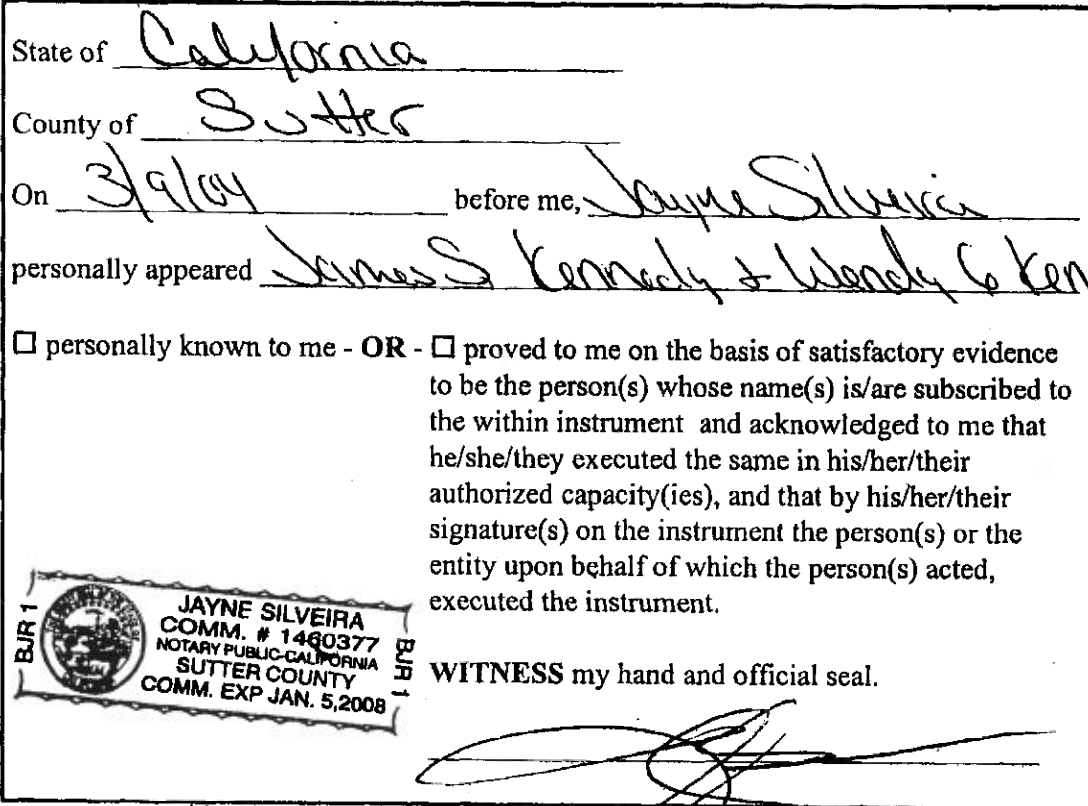 State of California
County of Sutter
On 3/9/04 before me, Jayne Silveira
personally appeared James S Kennedy + Wendy G Ken
☐ personally known to me - OR - ☐ proved to me on the basis of satisfactory evidence
to be the person(s) whose name(s) is/are subscribed to
the within instrument and acknowledged to me that
he/she/they executed the same in his/her/their
authorized capacity(ies), and that by his/her/their
signature(s) on the instrument the person(s) or the
entity upon behalf of which the person(s) acted,
executed the instrument.
BJR 1
JAYNE SILVEIRA
COMM. # 1460377
NOTARY PUBLIC-CALIFORNIA
SUTTER COUNTY
COMM. EXP JAN. 5,2008
BJR 1
WITNESS my hand and official seal.